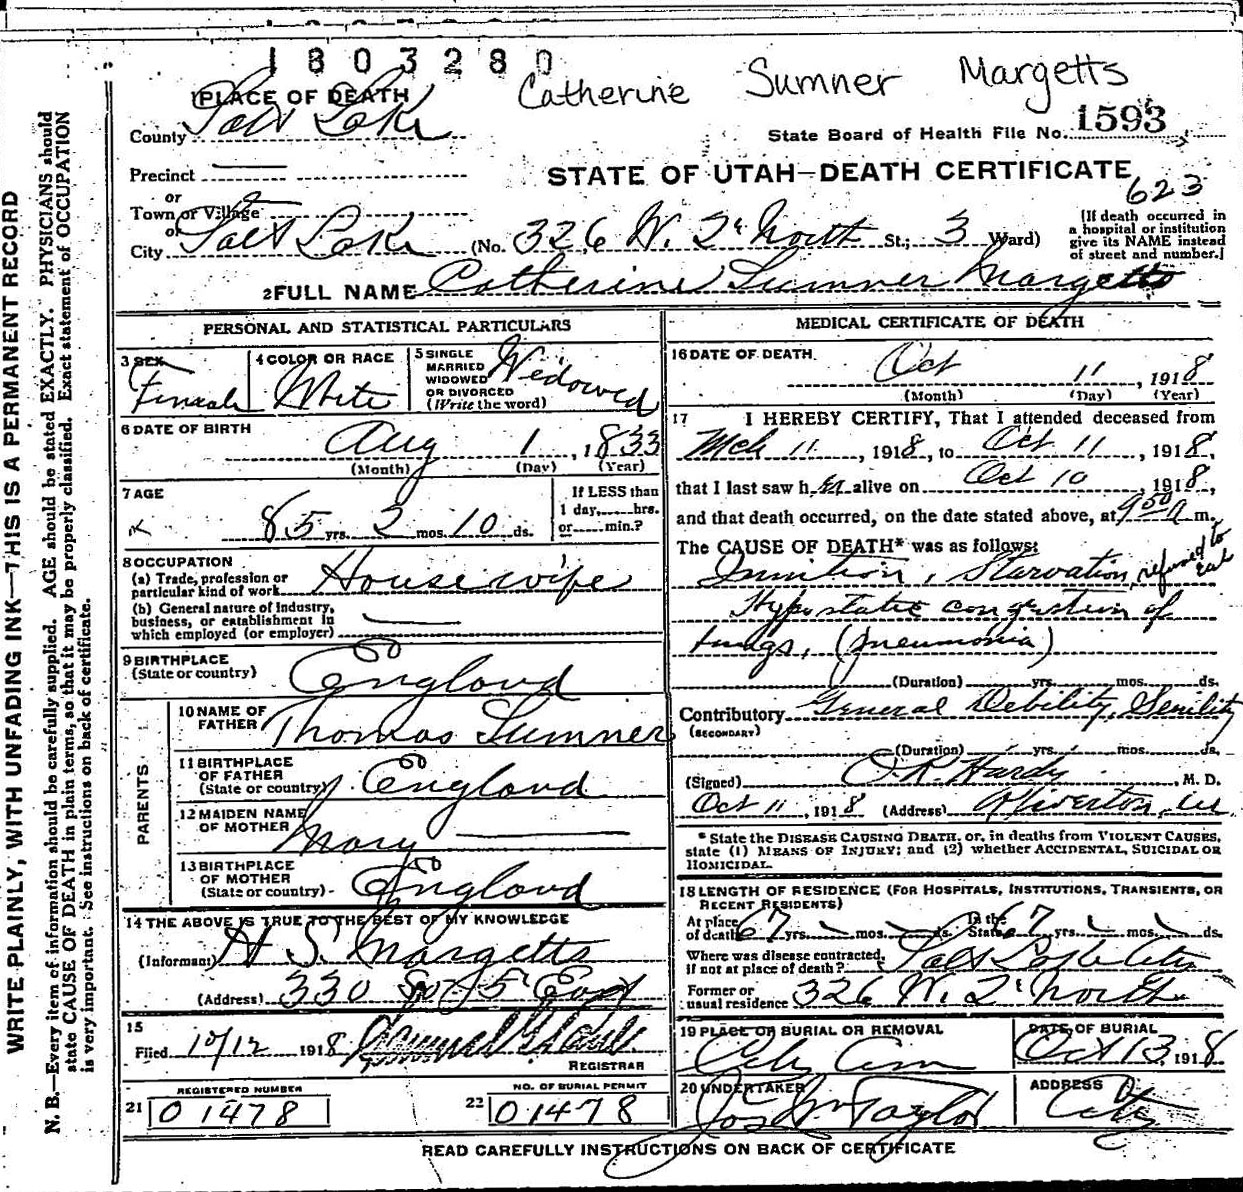 1803280
Catherine Sumner Margetts
PLACE OF DEATH
County Salt Lake
State Board of Health File No. 1593
Precinct
STATE OF UTAH—DEATH CERTIFICATE
623
or
Town or Village
or
City Salt Lake (No. 326 W. 2d North St.; 3 Ward)
[If death occurred in
a hospital or institution
give its NAME instead
of street and number.]
2 FULL NAME Catherine Sumner Margetts
PERSONAL AND STATISTICAL PARTICULARS
3 SEX
Female
4 COLOR OR RACE
White
5 SINGLE
MARRIED
WIDOWED
OR DIVORCED
(Write the word)
Widowed
6 DATE OF BIRTH
Aug 1, 1833
(Month) (Day) (Year)
7 AGE
85 yrs. 2 mos. 10 ds.
If LESS than
1 day,......hrs.
or......min.?
8 OCCUPATION
(a) Trade, profession or
particular kind of work Housewife
(b) General nature of Industry,
business, or establishment in
which employed (or employer)
9 BIRTHPLACE
(State or country) England
PARENTS
10 NAME OF
FATHER Thomas Sumner
11 BIRTHPLACE
OF FATHER
(State or country) England
12 MAIDEN NAME
OF MOTHER
Mary
13 BIRTHPLACE
OF MOTHER
(State or country) England
14 THE ABOVE IS TRUE TO THE BEST OF MY KNOWLEDGE
(Informant) H S. Margetts
(Address) 330 So 15 East
15
Filed 10/12 1918
REGISTRAR
REGISTERED NUMBER
21 01478
NO. OF BURIAL PERMIT
22 01478
MEDICAL CERTIFICATE OF DEATH
16 DATE OF DEATH
Oct 11, 1918
(Month) (Day) (Year)
17 I HEREBY CERTIFY, That I attended deceased from
Mch 11, 1918, to Oct 11, 1918,
that I last saw her alive on Oct 10, 1918,
and that death occurred, on the date stated above, at 9 50 a m.
The CAUSE OF DEATH* was as follows:
Inanition, Starvation, refused to eat
Hypostatic congestion of
lungs, (pneumonia)
(Duration) yrs. mos. ds.
Contributory General Debility, Senility
(SECONDARY)
(Duration) yrs. mos. ds.
(Signed) O. R. Hardy M. D.
Oct 11, 1918 (Address)
* State the DISEASE CAUSING DEATH, or, in deaths from VIOLENT CAUSES,
state (1) MEANS OF INJURY; and (2) whether ACCIDENTAL, SUICIDAL OR
HOMICIDAL.
18 LENGTH OF RESIDENCE (FOR HOSPITALS, INSTITUTIONS, TRANSIENTS, OR
RECENT RESIDENTS)
At place
of death 67 yrs. mos. ds.
In the
State 67 yrs. mos. ds.
Where was disease contracted,
if not at place of death? Salt Lake City
Former or
usual residence 326 W. 2d North
19 PLACE OF BURIAL OR REMOVAL
City Cem
DATE OF BURIAL
Oct 13, 1918
20 UNDERTAKER
Jos Wm Taylor
ADDRESS
City
READ CAREFULLY INSTRUCTIONS ON BACK OF CERTIFICATE
WRITE PLAINLY, WITH UNFADING INK—THIS IS A PERMANENT RECORD
N. B.—Every item of information should be carefully supplied. AGE should be stated EXACTLY. PHYSICIANS should
state CAUSE OF DEATH in plain terms, so that it may be properly classified. Exact statement of OCCUPATION
is very important. See instructions on back of certificate.